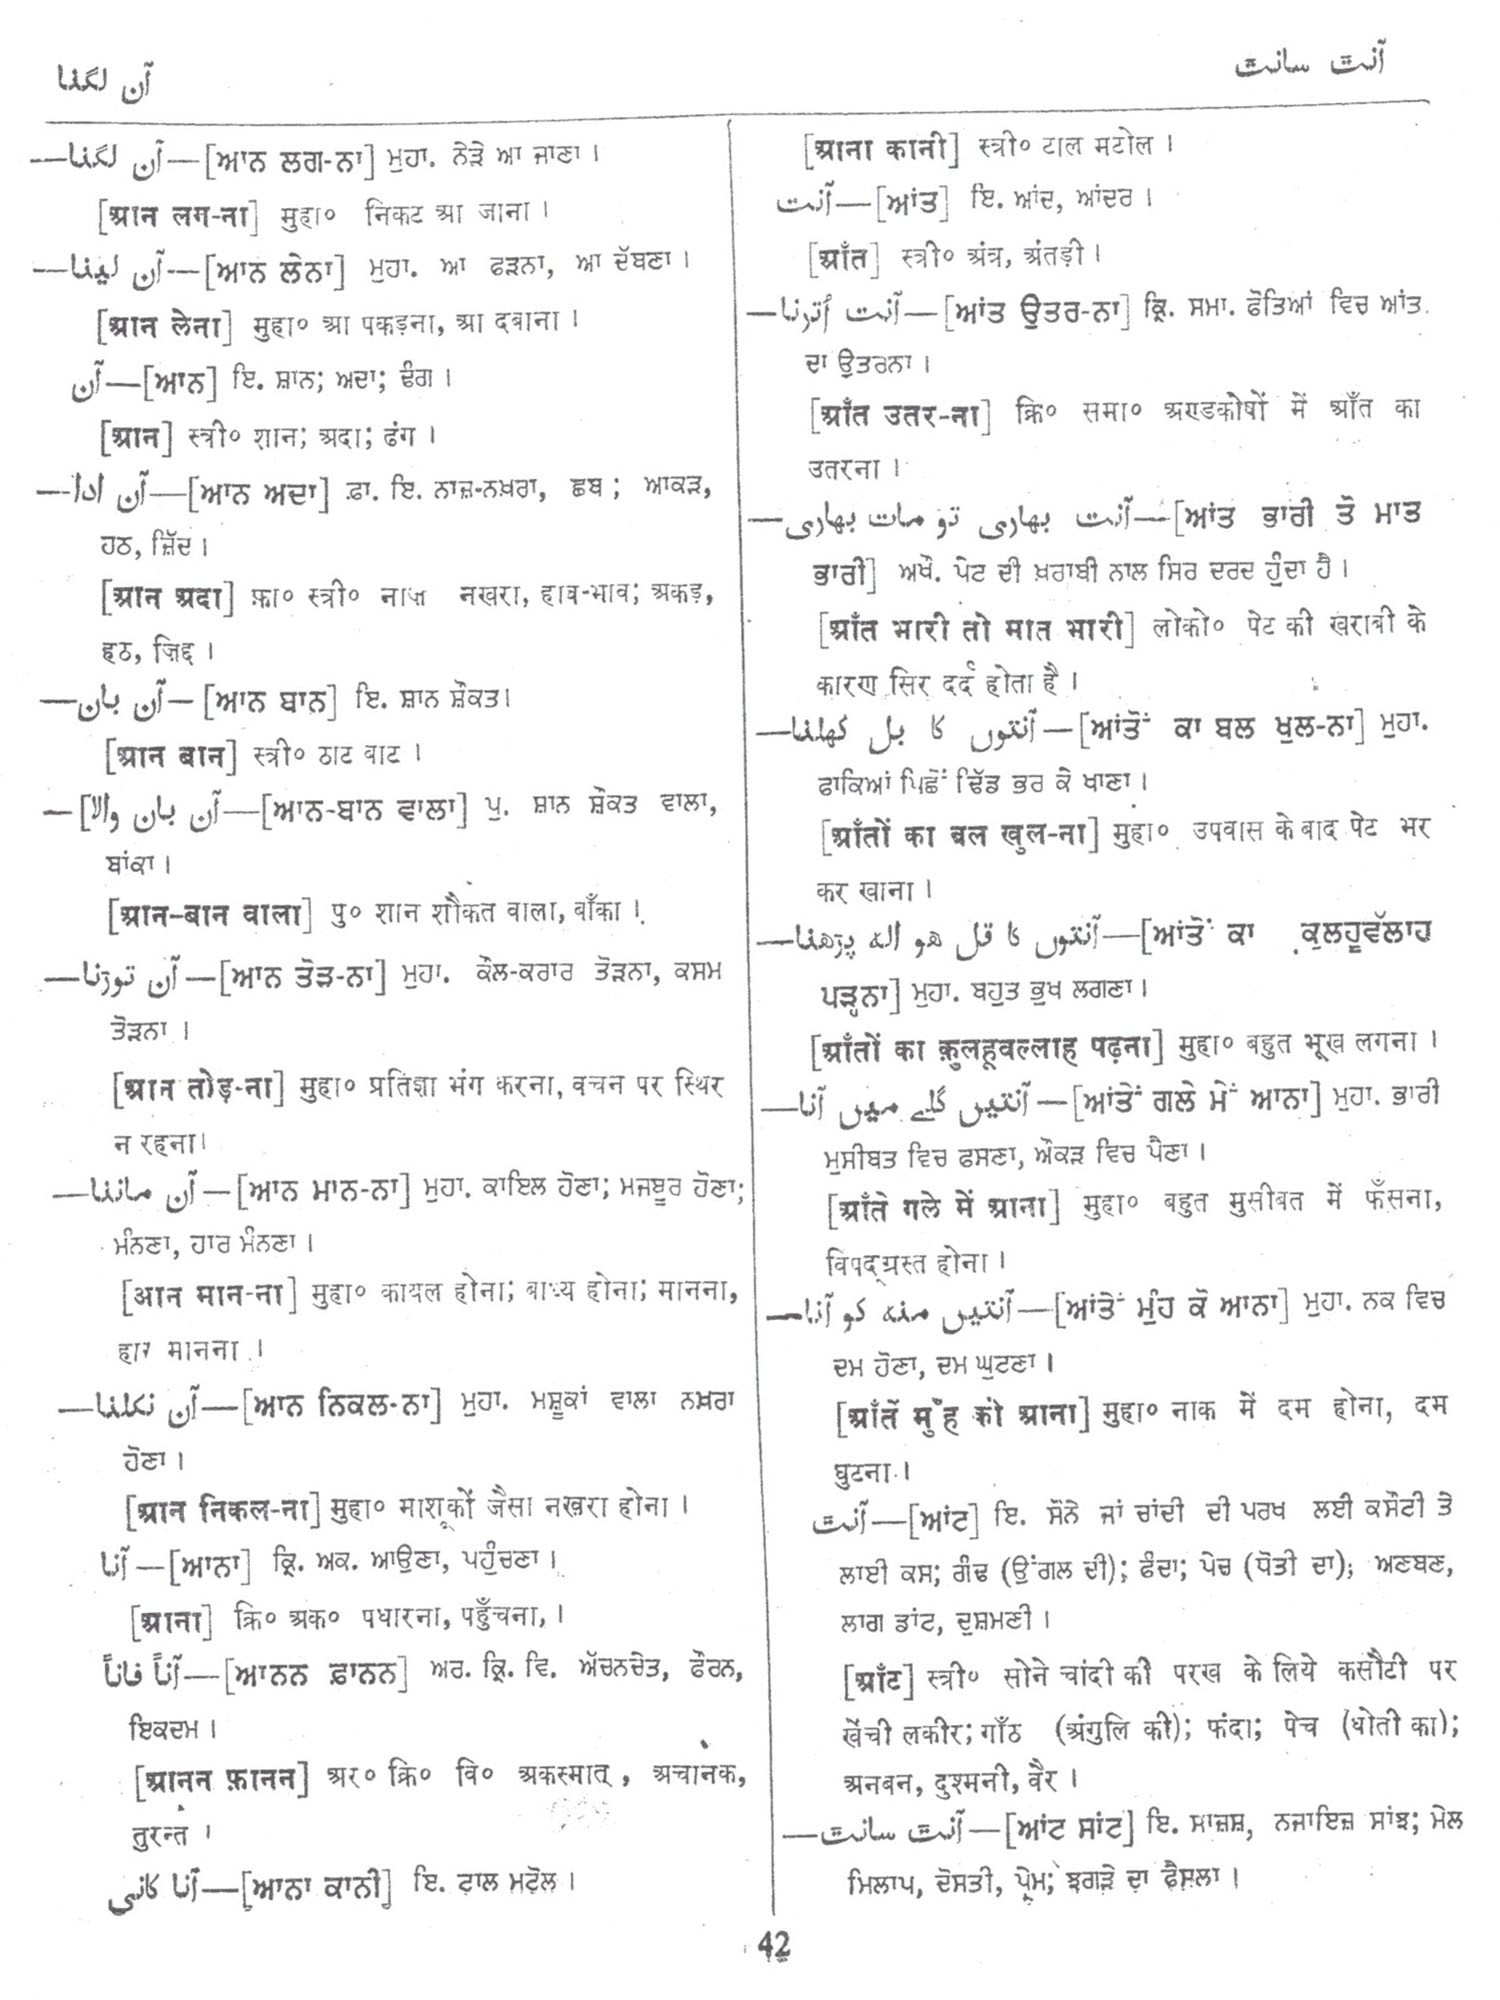 آن لگنا
آنٹ سانٹ
—آن لگنا—[ਆਨ ਲਗ-ਨਾ] ਮੁਹਾ. ਨੇੜੇ ਆ ਜਾਣਾ ।
[आन लग-ना] मुहा० निकट आ जाना ।
—آن لینا—[ਆਨ ਲੇਨਾ] ਮੁਹਾ. ਆ ਫੜਨਾ, ਆ ਦੱਬਣਾ ।
[आन लेना] मुहा० आ पकड़ना, आ दबाना ।
آن—[ਆਨ] ਇ. ਸ਼ਾਨ; ਅਦਾ; ਢੰਗ ।
[आन] स्त्री० शान; अदा; ढंग ।
—آن ادا—[ਆਨ ਅਦਾ] ਫ਼ਾ. ਇ. ਨਾਜ਼-ਨਖ਼ਰਾ, ਛਬ; ਆਕੜ,
ਹਠ, ਜ਼ਿੱਦ ।
[आन अदा] फ़ा० स्त्री० नाज़ नखरा, हाव-भाव; अकड़,
हठ, ज़िद्द ।
—آن بان—[ਆਨ ਬਾਨ] ਇ. ਸ਼ਾਨ ਸ਼ੌਕਤ।
[आन बान] स्त्री० ठाट बाट ।
—آن بان والا]—[ਆਨ-ਬਾਨ ਵਾਲਾ] ਪੁ. ਸ਼ਾਨ ਸ਼ੌਕਤ ਵਾਲਾ,
ਬਾਂਕਾ ।
[आन-बान वाला] पु० शान शौकत वाला, बाँका ।
—آن توڑنا—[ਆਨ ਤੋੜ-ਨਾ] ਮੁਹਾ. ਕੌਲ-ਕਰਾਰ ਤੋੜਨਾ, ਕਸਮ
ਤੋੜਨਾ ।
[आन तोड़-ना] मुहा० प्रतिज्ञा भंग करना, वचन पर स्थिर
न रहना।
—آن ماننا—[ਆਨ ਮਾਨ-ਨਾ] ਮੁਹਾ. ਕਾਇਲ ਹੋਣਾ; ਮਜਬੂਰ ਹੋਣਾ;
ਮੰਨਣਾ, ਹਾਰ ਮੰਨਣਾ ।
[आन मान-ना] मुहा० कायल होना; बाध्य होना; मानना,
हार मानना ।
—آن نکلنا—[ਆਨ ਨਿਕਲ-ਨਾ] ਮੁਹਾ. ਮਸ਼ੂਕਾਂ ਵਾਲਾ ਨਖ਼ਰਾ
ਹੋਣਾ ।
[आन निकल-ना] मुहा० माशूकों जैसा नखरा होना ।
آنا—[ਆਨਾ] ਕ੍ਰਿ. ਅਕ. ਆਉਣਾ, ਪਹੁੰਚਣਾ ।
[आना] क्रि० अक० पधारना, पहुँचना, ।
آناً فاناً—[ਆਨਨ ਫ਼ਾਨਨ] ਅਰ. ਕ੍ਰਿ. ਵਿ. ਅੱਚਨਚੇਤ, ਫੌਰਨ,
ਇਕਦਮ ।
[आनन फ़ानन] अर० क्रि० वि० अकस्मात्, अचानक,
तुरन्त ।
آنا کانی—[ਆਨਾ ਕਾਨੀ] ਇ. ਟਾਲ ਮਟੋਲ ।
[आना कानी] स्त्री० टाल मटोल ।
آنت—[ਆਂਤ] ਇ. ਆਂਦ, ਆਂਦਰ ।
[आँत] स्त्री० अंत्र, अंतड़ी ।
—آنت اُترنا—[ਆਂਤ ਉਤਰ-ਨਾ] ਕ੍ਰਿ. ਸਮਾ. ਫੋਤਿਆਂ ਵਿਚ ਆਂਤ
ਦਾ ਉਤਰਨਾ ।
[आँत उतर-ना] क्रि० समा० अण्डकोषों में आँत का
उतरना ।
—آنت بھاری تو مات بھاری—[ਆਂਤ ਭਾਰੀ ਤੋ ਮਾਤ
ਭਾਰੀ] ਅਖੌ. ਪੇਟ ਦੀ ਖ਼ਰਾਬੀ ਨਾਲ ਸਿਰ ਦਰਦ ਹੁੰਦਾ ਹੈ ।
[आँत भारी तो मात भारी] लोको० पेट की खराबी के
कारण सिर दर्द होता है ।
—آنتوں کا بل کھلنا—[ਆਂਤੋਂ ਕਾ ਬਲ ਖੁਲ-ਨਾ] ਮੁਹਾ.
ਫਾਕਿਆਂ ਪਿਛੋਂ ਢਿੱਡ ਭਰ ਕੇ ਖਾਣਾ ।
[आँतों का बल खुल-ना] मुहा० उपवास के बाद पेट भर
कर खाना ।
—آنتوں کا قل ھو اللہ پڑھنا—[ਆਂਤੋਂ ਕਾ ਕੁਲਹੂਵੱਲਾਹ
ਪੜ੍ਹਨਾ] ਮੁਹਾ. ਬਹੁਤ ਭੁਖ ਲਗਣਾ ।
[आँतों का क़ुलहूवल्लाह पढ़ना] मुहा० बहुत भूख लगना ।
—آنتیں گلے میں آنا—[ਆਂਤੇਂ ਗਲੇ ਮੇਂ ਆਨਾ] ਮੁਹਾ. ਭਾਰੀ
ਮੁਸੀਬਤ ਵਿਚ ਫਸਣਾ, ਔਕੜ ਵਿਚ ਪੈਣਾ ।
[आँते गले में आना] मुहा० बहुत मुसीबत में फँसना,
विपद्ग्रस्त होना ।
—آنتیں منہ کو آنا—[ਆਂਤੇਂ ਮੁੰਹ ਕੋ ਆਨਾ] ਮੁਹਾ. ਨਕ ਵਿਚ
ਦਮ ਹੋਣਾ, ਦਮ ਘੁਟਣਾ ।
[आँतें मुँह को आना] मुहा० नाक में दम होना, दम
घुटना ।
آنٹ—[ਆਂਟ] ਇ. ਸੋਨੇ ਜਾਂ ਚਾਂਦੀ ਦੀ ਪਰਖ ਲਈ ਕਸੌਟੀ ਤੇ
ਲਾਈ ਕਸ; ਗੰਢ (ਉਂਗਲ ਦੀ); ਫੰਦਾ; ਪੇਚ (ਧੋਤੀ ਦਾ); ਅਣਬਣ,
ਲਾਗ ਡਾਂਟ, ਦੁਸ਼ਮਣੀ ।
[आँट] स्त्री० सोने चांदी की परख के लिये कसौटी पर
खेंची लकीर; गाँठ (अंगुलि की); फंदा; पेच (धोती का);
अनबन, दुश्मनी, वैर ।
—آنٹ سانٹ—[ਆਂਟ ਸਾਂਟ] ਇ. ਸਾਜ਼ਸ਼, ਨਜਾਇਜ਼ ਸਾਂਝ; ਮੇਲ
ਮਿਲਾਪ, ਦੋਸਤੀ, ਪ੍ਰੇਮ; ਝਗੜੇ ਦਾ ਫੈਸਲਾ ।
42